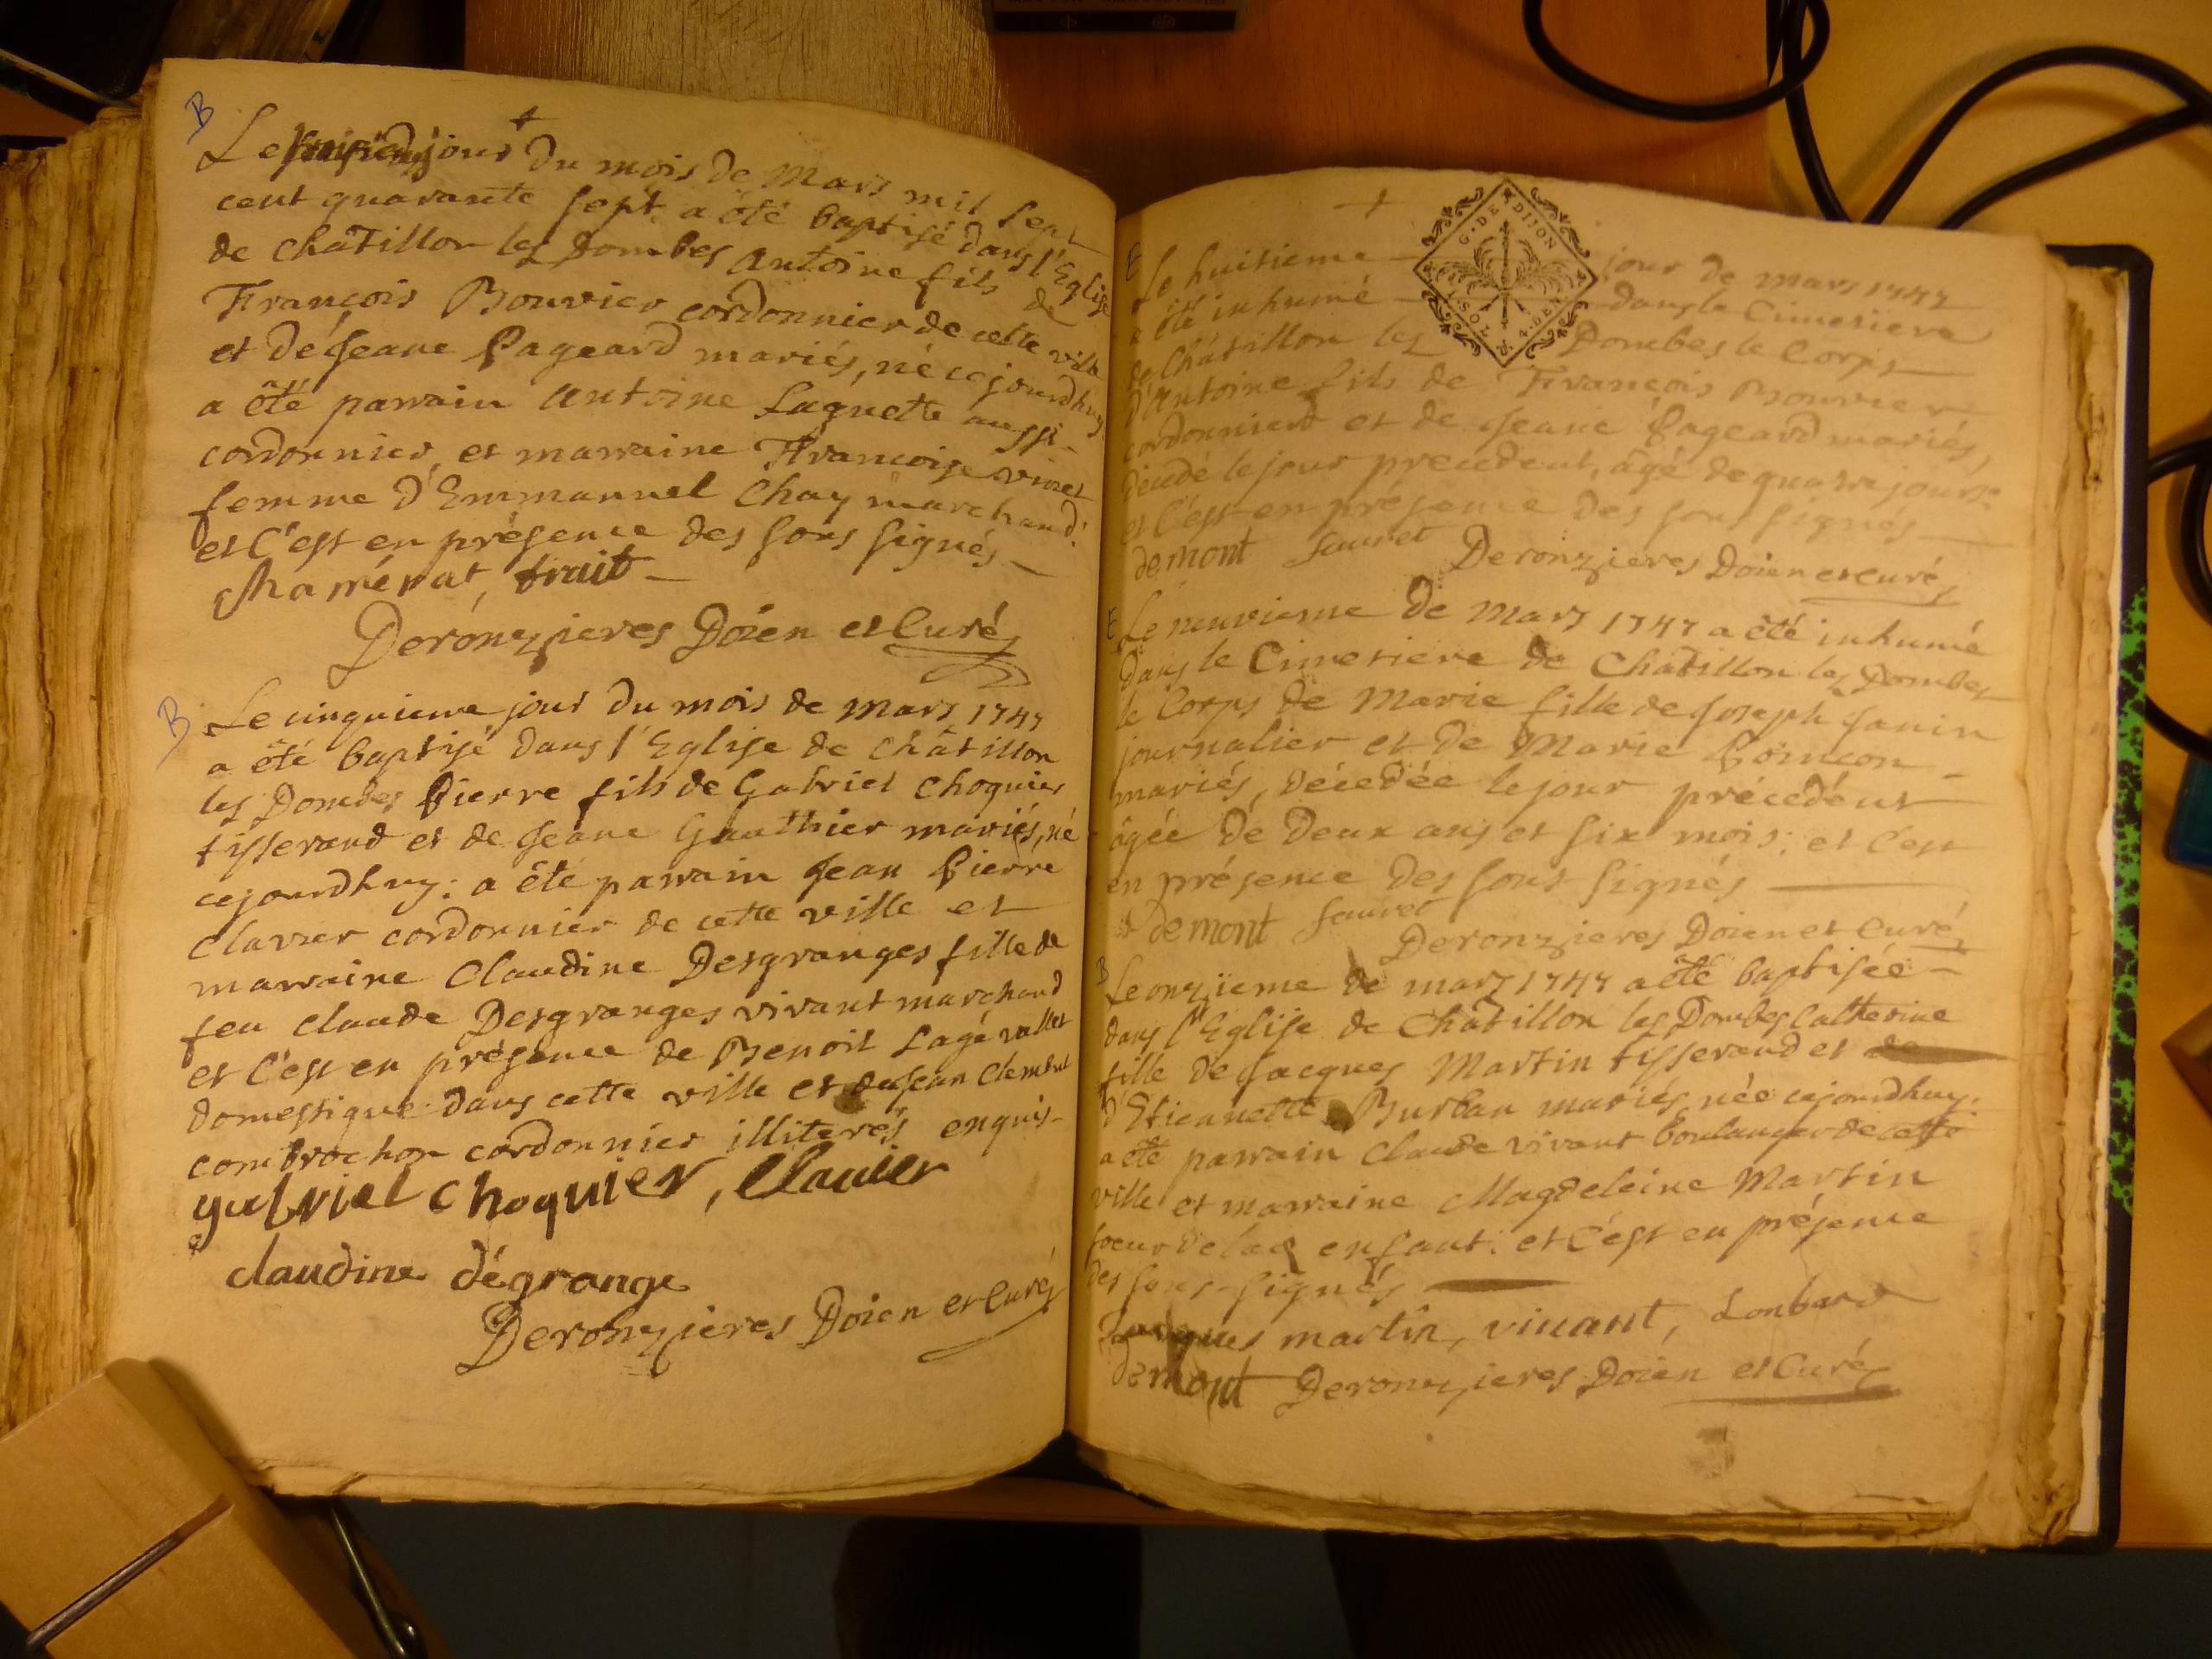 B
Le jour du mois de Mars mil sept
cent quarante sept a été baptisé dans l'Eglise
de Châtillon les Dombes Antoine fils de
François Bouvier cordonnier de cette ville
et de Jeane Pageard mariés, né cejourdhuy.
a été parrain Antoine Laguette aussi
cordonnier et marraine Françoise
femme d'Emmanuel Chay marchand.
et c'est en présence des sous signés
Chamérat, trait
Deronzieres Doien et Curé
B
Le cinquieme jour du mois de mars 1747
a été baptisé dans l'Eglise de Châtillon
les Dombes Pierre fils de Gabriel Choquier
tisserand et de Jeane Gauthier mariés, né
cejourdhuy: a été parrain Jean Pierre
Clavier cordonnier de cette ville et
marraine Claudine Desgranges fille de
feu Claude Desgranges vivant marchand
et c'est en présence de Benoit Lagé vallet
domestique dans cette ville et de Jean Clement
combrochon cordonnier illiterés enquis
gabriel choquier, Clavier
claudine dégrange
Deronzieres Doien et Curé
G. DE DITION
4. DEN
SOLS
E
Le huitieme jour de mars 1747
a été inhumé dans le Cimetiere
de Châtillon les Dombes le Corps
d'Antoine fils de François Bouvier
cordonnier et de Jeane Pageard mariés,
décédé le jour precedent, âgé de quatre jours.
et c'est en présence des sous signés
demont Sauret Deronzieres Doien et curé
E
Le neuvieme de Mars 1747 a été inhumé
dans le Cimetiere de Châtillon les Dombes
le Corps de Marie fille de Joseph Janin
journalier et de Marie Poinçon
mariés, décedée le jour précédent
âgée de deux ans et six mois: et c'est
en présence des sous signés
demont Sauret
Deronzieres Doien et Curé
B
Le onzieme de mars 1747 a été baptisée
dans l'Eglise de Châtillon les Dombes Catherine
fille de Jacques Martin tisserand et de
d'Etiennette Burban mariés née cejourdhuy.
a été parrain Claude vivant boulanger de cette
ville et marraine Magdeleine Martin
soeur de la enfant: et c'est en présence
des sous-signés
Jacques martin, vivant, Lonbard
demont Deronzieres Doien et Curé